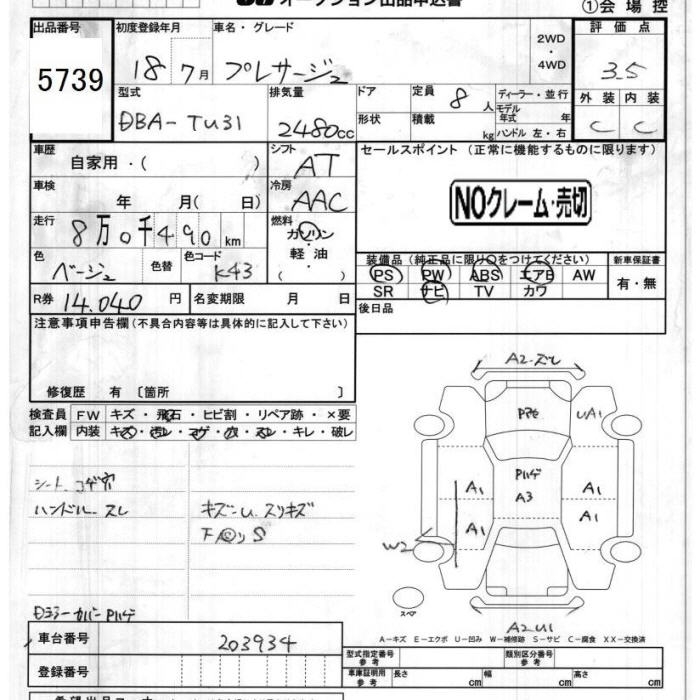 オークション出品申込書
①会場控
出品番号 初度登録年月 車名・グレード 2WD・4WD 評価点
5739 18 7月 プレサージュ 3.5
型式 排気量 ドア 定員 8人 ディーラー・並行 外装 内装
DBA-TU31 2480cc 形状 積載 kg モデル年式 年 ハンドル 左・右 C C
車歴 自家用・( ) シフト AT セールスポイント (正常に機能するものに限ります)
車検 年 月( 日) 冷房 AAC NOクレーム・売切
走行 8万0千490km 燃料 ガソリン・軽油・( )
色 ベージュ 色替 色コード K43 装備品 (純正品に限り○をつけてください) 新車保証書
PS PW ABS エアB AW 有・無
SR ナビ TV カワ
R券 14.040円 名変期限 月 日 後日品
注意事項申告欄(不具合内容等は具体的に記入して下さい)
修復歴 有〔箇所 〕
検査員記入欄 FW キズ・飛石・ヒビ割・リペア跡・×要
内装 キズ・汚レ・コゲ・穴・スレ・キレ・破レ
シート コゲ穴
ハンドル スレ キズ-U. スリキズ
Dミラーカバー Pハゲ
A2.ズレ
UA1
Pハゲ
A3
A1 A1
A1 A1
W2
スペア
A2U1
A-キズ E-エクボ U-凹み W-補修跡 S-サビ C-腐食 XX-交換済
車台番号 203934
型式指定番号 参考 類別区分番号 参考
登録番号 車庫証明用 参考 長さ cm 幅 cm 高さ cm